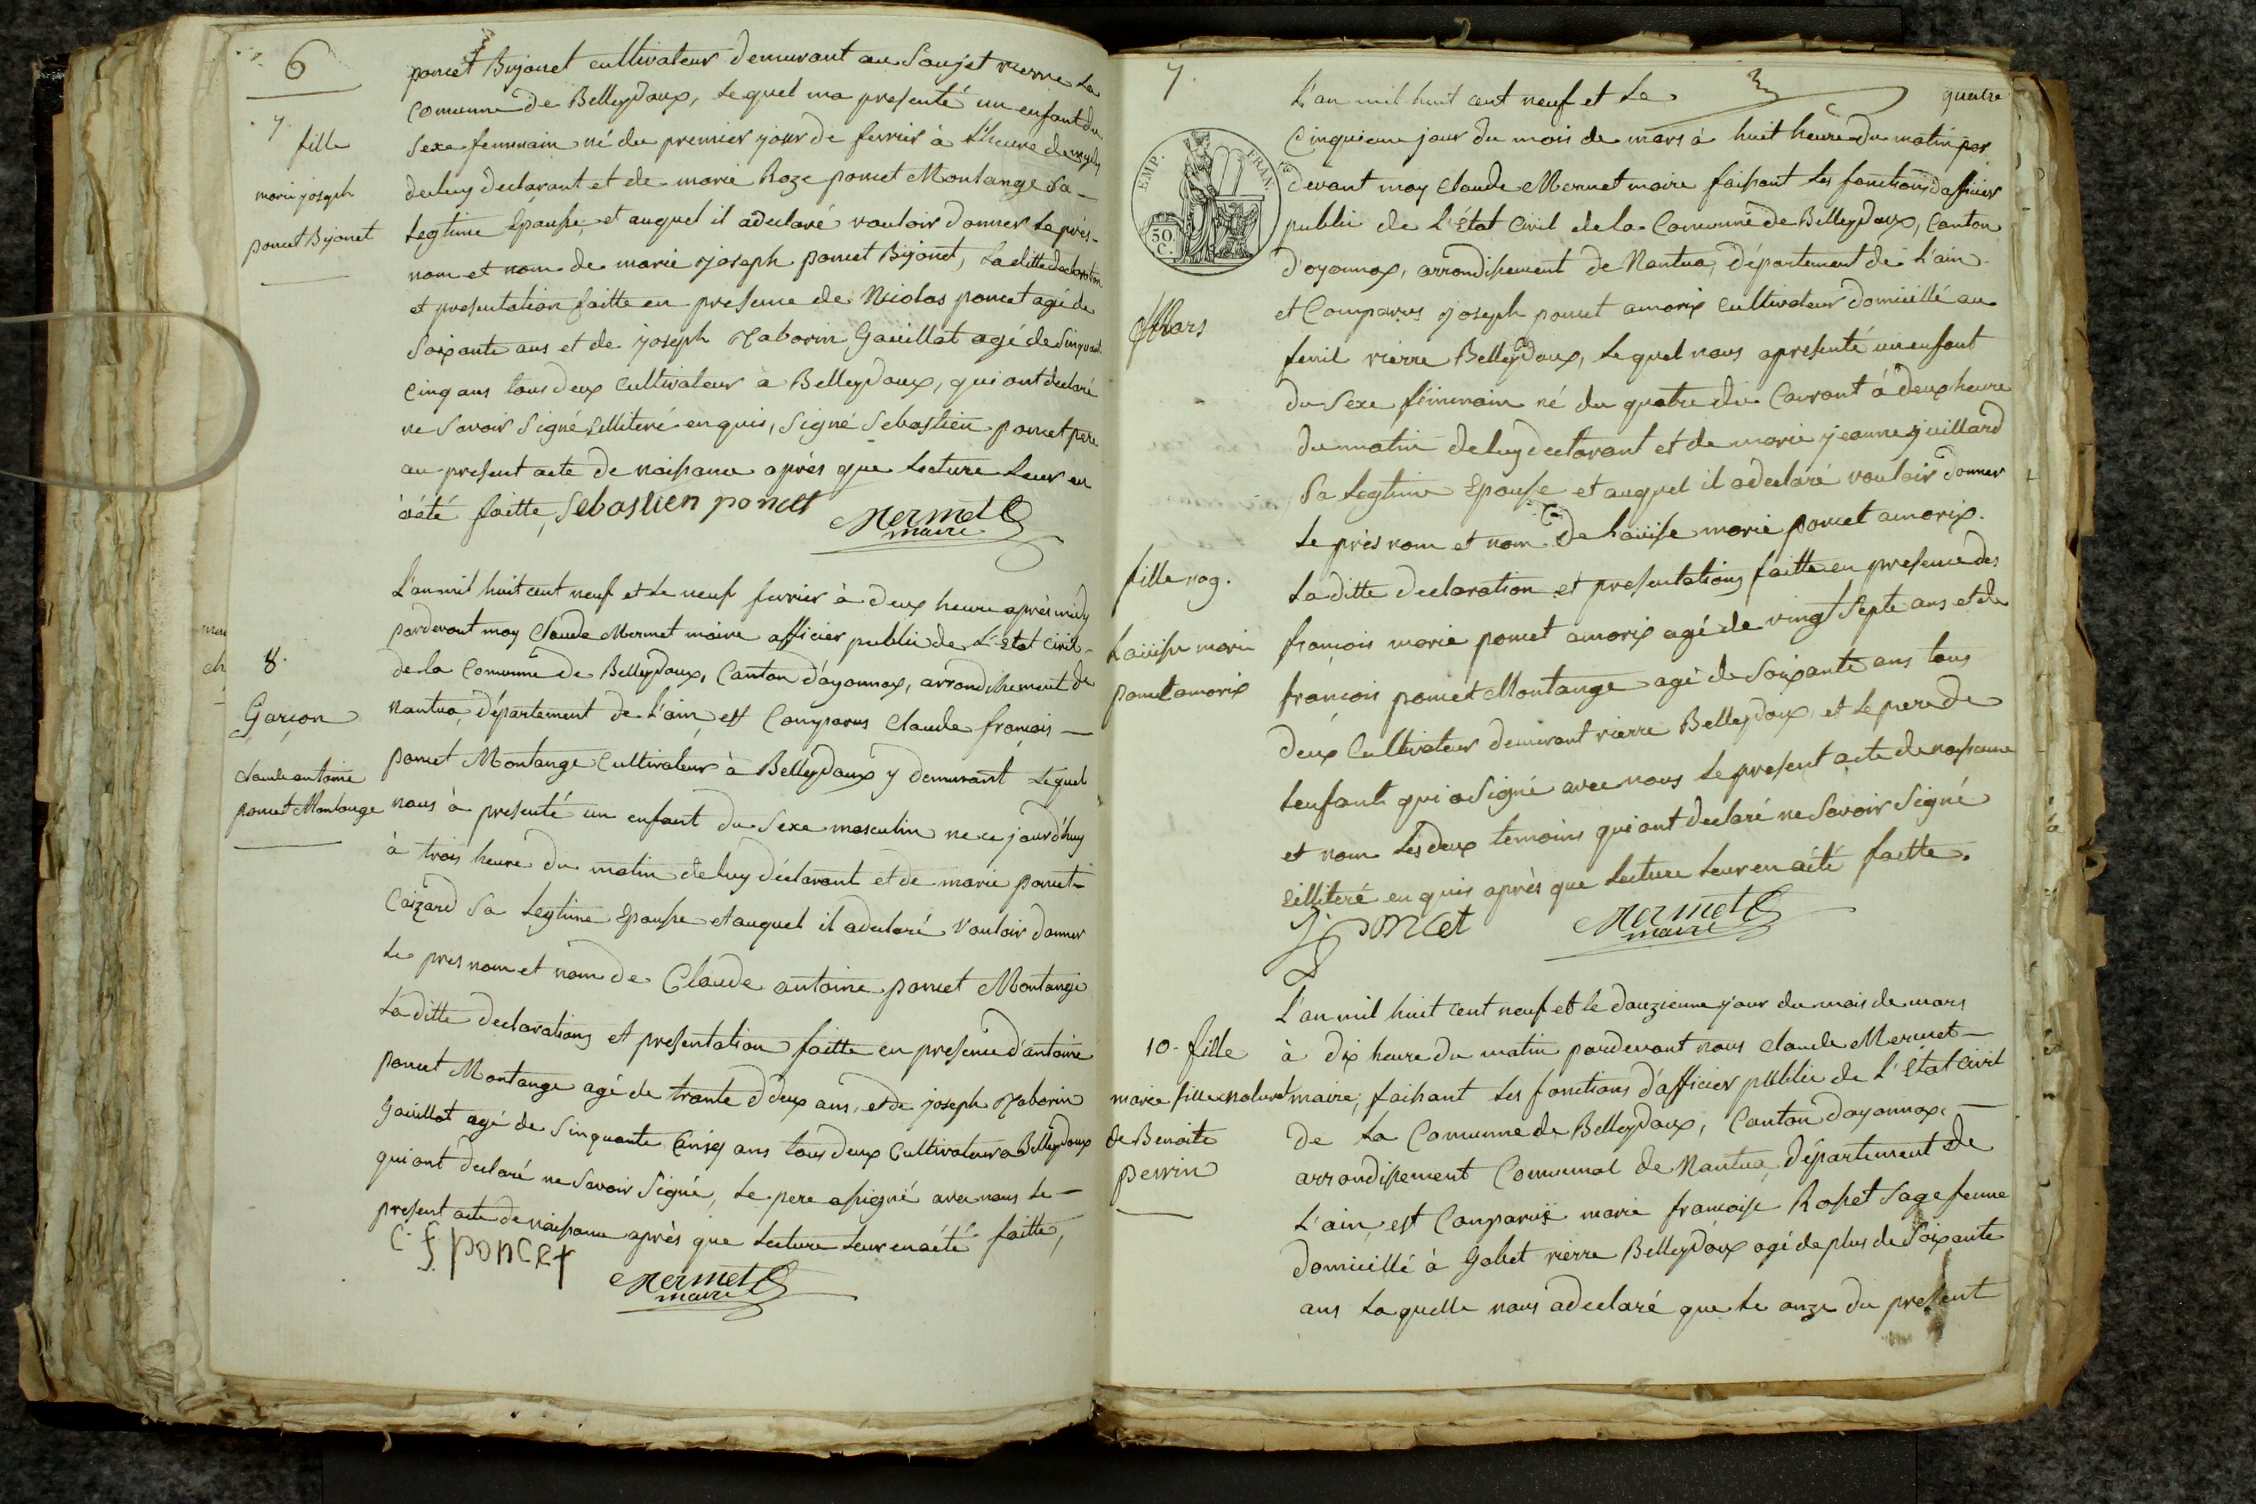 6
7.
fille
marie joseph
poncet Bijonet
poncet Bijonet cultivateur demurant au Soujet rierre La
Comunne de Belleydoux, Lequel ma presenté un enfant du
Sexe feminain né du premier jour de fevrier à L'heure de
deluy declarant et de marie Roze poncet Montange Sa
Legtime Epouse, et auquel il adeclaré vouloir donner Le prés-
nom et nom de marie joseph poncet Bijonet, La ditte declaration
et presentation faitte en presence de Nicolas poncet agé de
Soixante ans et de joseph Taborin Gauillat agé de Sinquant
Cinq ans tous deux Cultivateur à Belleydoux, qui ont declaré
ne Savoir Signé illiteré enquis, Signé Sebastien poncet pere
au present acte de naissance après que Lecture Leur en
à été faitte, Sebastien poncet
Mermet
maire
8.
Garçon
Claude antoine
poncet Montange
L'an mil huit cent neuf et Le neuf fevrier à deux heure après midy
pardevant moy Claude Mermet maire officier public de L'Etat Civil
de la Comunne de Belleydoux, Canton d'oyonnax, arrondissement de
Nantua, département de L'ain est Comparus Claude françois
poncet Montange Cultivateur à Belleydoux y demurant Lequel
nous à presenté un enfant du Sexe masculin ne ce jourd'huy
à trois heure du matin deluy déclarant et de marie poncet
Caizard Sa Legtime Epouse et auquel il adeclaré vouloir donner
Le pres nom et nom de Claude antoine poncet Montange
La ditte declarations et presentation faitte en presence d'antoine
poncet Montange agé de trante deux ans, et de joseph Taborin
Gauillat agé de Sinquante Cinq ans tous deux Cultivateur a Belleydoux
qui ont declaré ne Savoir Signé, Le pere asigné avec nous Le
present acte de naissance après que Lecture Leur en aété faitte,
C. f poncet
Mermet
maire
7.
quatre
EMP. FRAN.
50.
C.
Mars
L'an mil huit cent neuf et Le
Cinquieme jour du mois de mars à huit heure du matin par
devant moy Claude Mermet maire faisant Les fonctions d'officier
public de L'État Civil de la Comunne de Belleydoux, Canton
d'oyonnax, arrondissement de Nantua, département de L'ain
et Comparus joseph poncet amorix cultivateur domicillé au
fenil rierre Belleydoux, Lequel nous apresenté un enfant
du Sexe féminain né du quatre du Courant à deux heure
du matin de luy declarant et de marie jeanne juillard
Sa Legtime Epouse et auquel il adeclaré vouloir donner
Le près nom et nom de Laüise marie poncet amorix.
fille no 9.
Laüise marie
poncet amorix
La ditte declaration et presentations faitte en presence des
françois marie poncet amorix agé de vingt Septe ans et de
françois poncet Montange agé de Soixante ans tous
deux Cultivateur demurant rierre Belleydoux et Le pere de
Lenfant qui a Signé avec nous Le present acte de naissance
et nom Les deux temoins qui ont declaré ne Savoir Signé
illiteré enquis après que Lecture Leur en aété faitte.
J poncet
Mermet
maire
10. fille
marie fille naturel
de Benoite
perrin
L'an mil huit cent neuf et le douzieme jour du mois de mars
à dix heure du matin pardevant nous Claude Mermet
maire, faisant Les fonctions d'officier public de L'Etat Civil
de La Comunne de Belleydoux, Canton doyonnax,
arrondissement Comunnal de Nantua, département de
L'ain, est Comparuë marie francoise Rosset Sage femme
domicillé à Gobet rierre Belleydoux agé de plus de Soixante
ans Laquelle nous adeclaré que Le onze du present